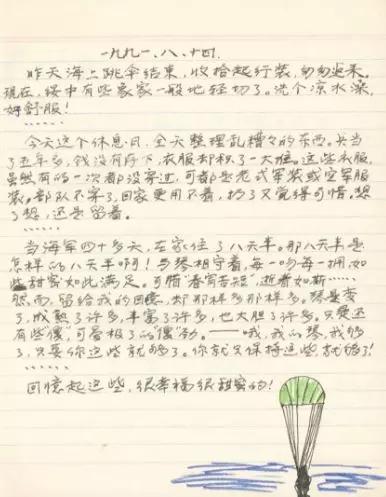 一九九一.八.十四.
昨天海上跳伞结束,收拾起行装,匆匆返来。
现在,绥中有些象家一般地轻切了。洗个凉水澡,
好舒服!
……
今天这个休息日,全天整理乱糟々的东西。兵当
了五年多,钱没有存下,衣服却积了一大堆。这些衣服,
虽然有的一次都没穿过,可都是老式军装或空军服
装。部队不穿了,回家更用不着,扔了又觉得可惜,想
了想,还是留着。
……
当海军四十多天,在家住了八天半。那八天半是
怎样的八天半啊!与琴相守着,每一吻每一拥如
甜蜜如此满足。可谓"春宵苦短",逝者如斯……
然而,留给我的回忆,却那样多那样多。琴是变
了,成熟了许多,丰富了许多,也大胆了许多。只是还
有些"傻",可爱极了的"傻"劲。——哦,我的琴,我够
了,只要你这些就够了。你就只保持这些,就够了!
……
回忆起这些,很幸福很甜蜜的!